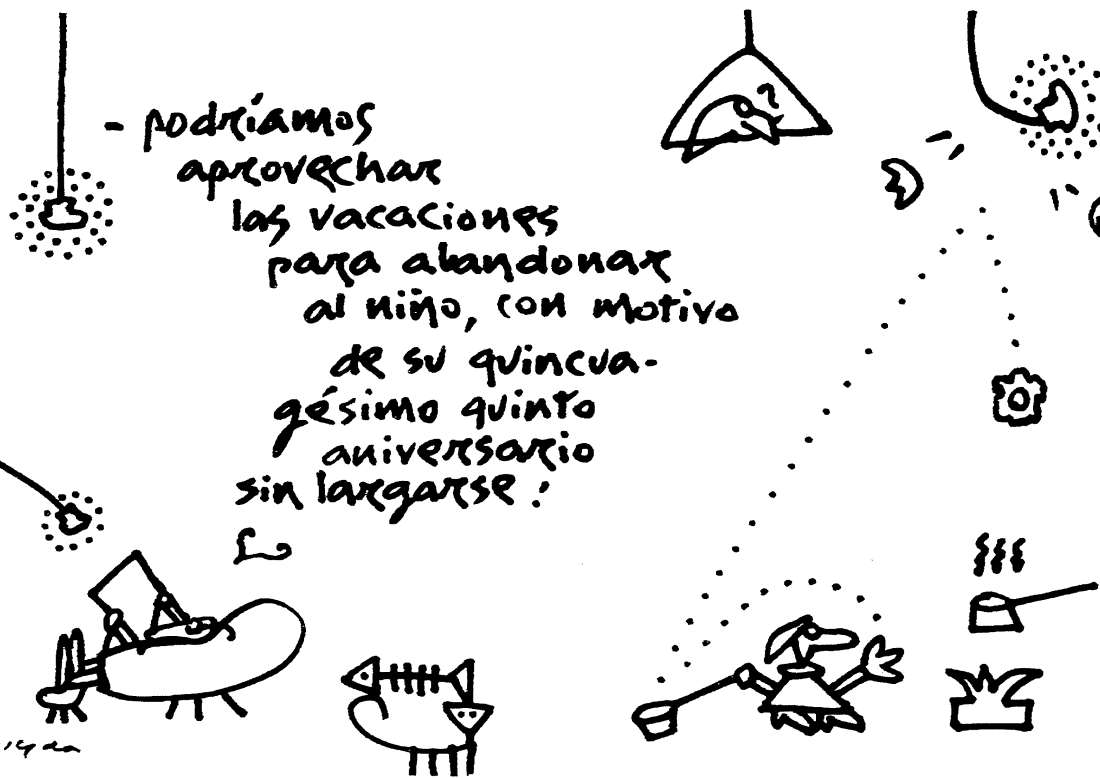 - podríamos
aprovechar
las vacaciones
para abandonar
al niño, con motivo
de su quincua-
gésimo quinto
aniversario
sin largarse!
?